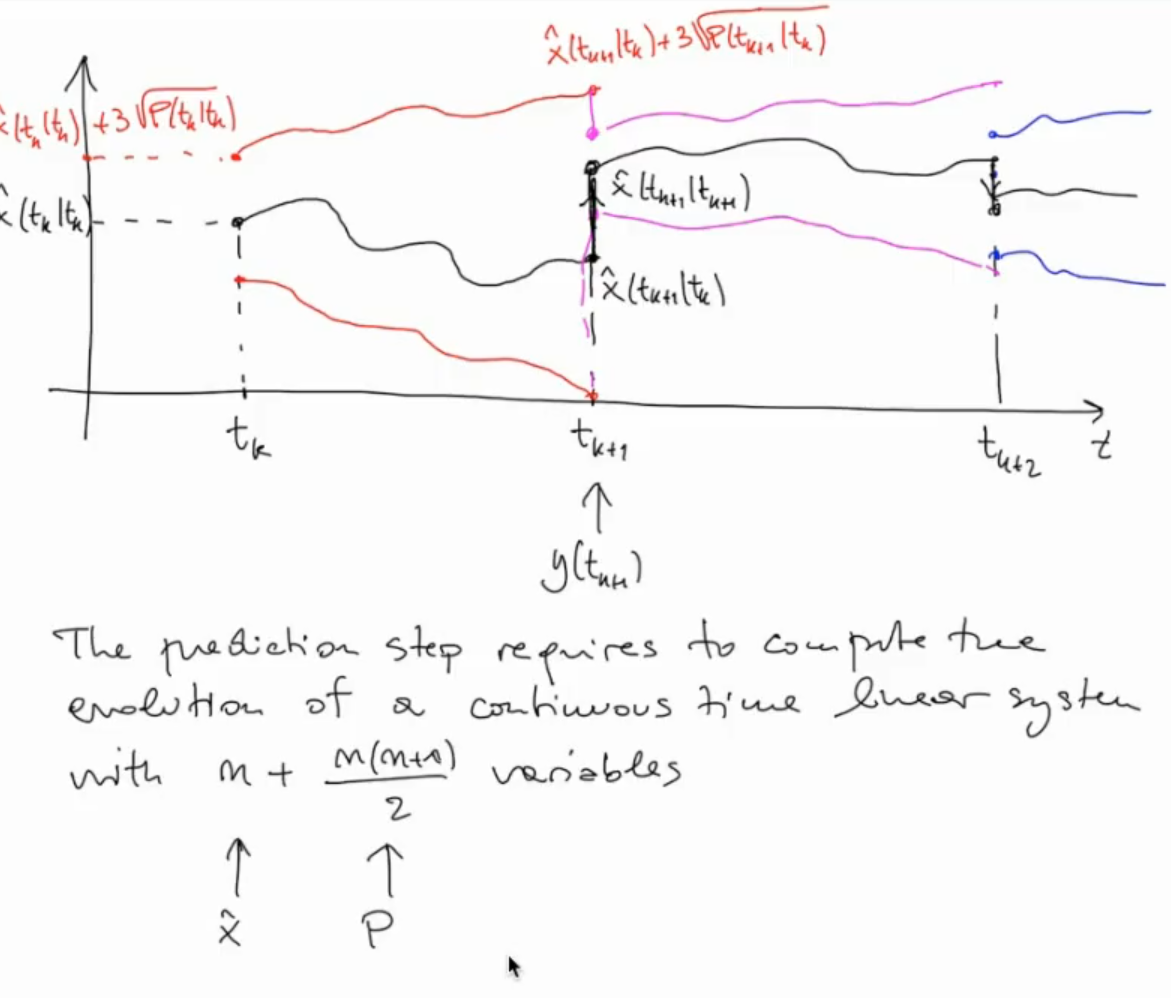 x̂(t_{k+1}|t_k)+3√P(t_{k+1}|t_k)
x̂(t_k|t_k)+3√P(t_k|t_k)
x̂(t_k|t_k)
x̂(t_{k+1}|t_{k+1})
x̂(t_{k+1}|t_k)
t_k
t_{k+1}
t_{k+2}
t
y(t_{k+1})
The prediction step requires to compute the
evolution of a continuous time linear system
with n + n(n+1)/2 variables
x̂
P